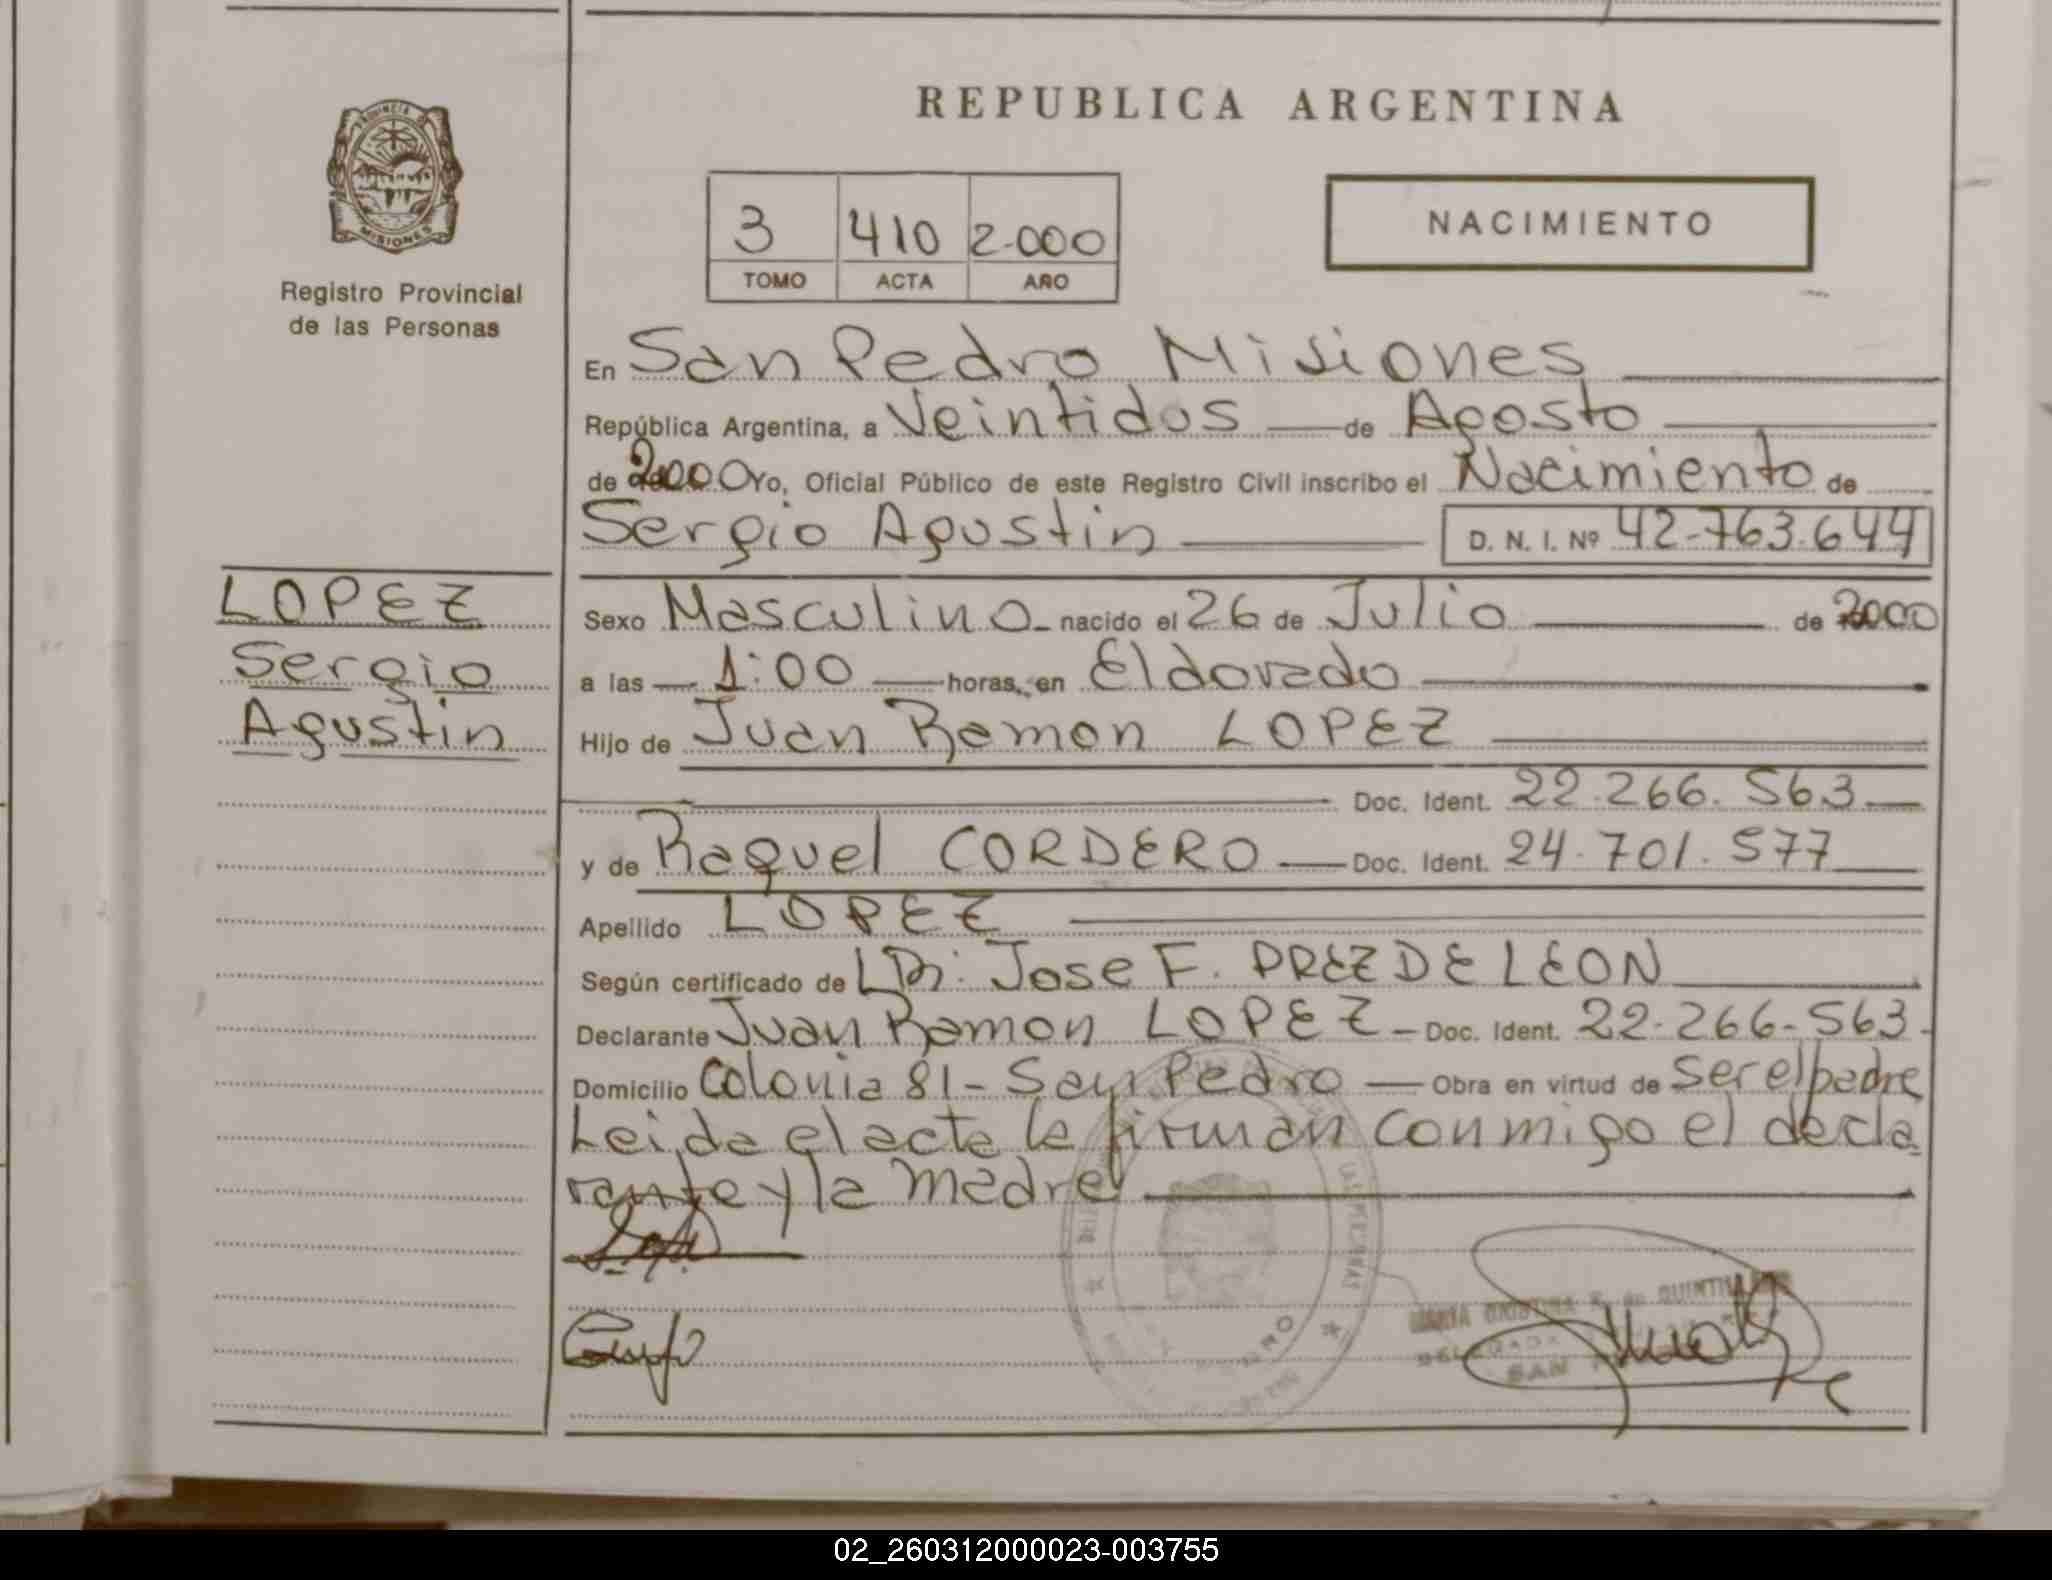 REPUBLICA ARGENTINA
PROVINCIA DE
MISIONES
Registro Provincial
de las Personas
3 410 2.000
TOMO ACTA AÑO
NACIMIENTO
En San Pedro Misiones
República Argentina, a Veintidos de Agosto
de 2000 Yo, Oficial Público de este Registro Civil inscribo el Nacimiento de
Sergio Agustin D. N. I. Nº 42.763.644
LOPEZ
Sergio
Agustin
Sexo Masculino nacido el 26 de Julio de 2000
a las 1:00 horas, en Eldorado
Hijo de Juan Ramon LOPEZ
Doc. Ident. 22.266.563
y de Raquel CORDERO Doc. Ident. 24.701.577
Apellido LOPEZ
Según certificado de Dr. Jose F. PREZ DE LEON
Declarante Juan Ramon LOPEZ Doc. Ident. 22.266.563
Domicilio Colonia 81 - San Pedro Obra en virtud de ser el padre
Leida el acta la firman conmigo el decla
rante y la madre
SAN
02_260312000023-003755